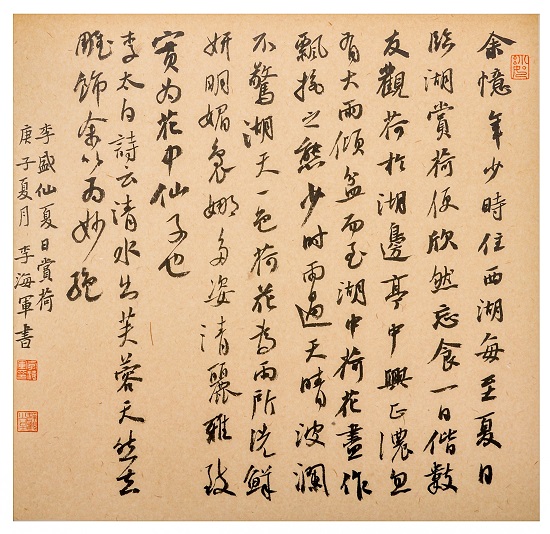 余憶年少時住西湖每至夏日
臨湖賞荷便欣然忘食一日偕數
友觀荷於湖邊亭中興正濃忽
有大雨傾盆而至湖中荷花盡作
飄搖之態少時雨過天晴波瀾
不驚湖天一色荷花為雨所洗鮮
妍明媚裊娜多姿清麗雅致
實為花中仙子也
李太白詩云清水出芙蓉天然去
雕飾余以為妙絕
李盛仙夏日賞荷
庚子夏月 李海軍書